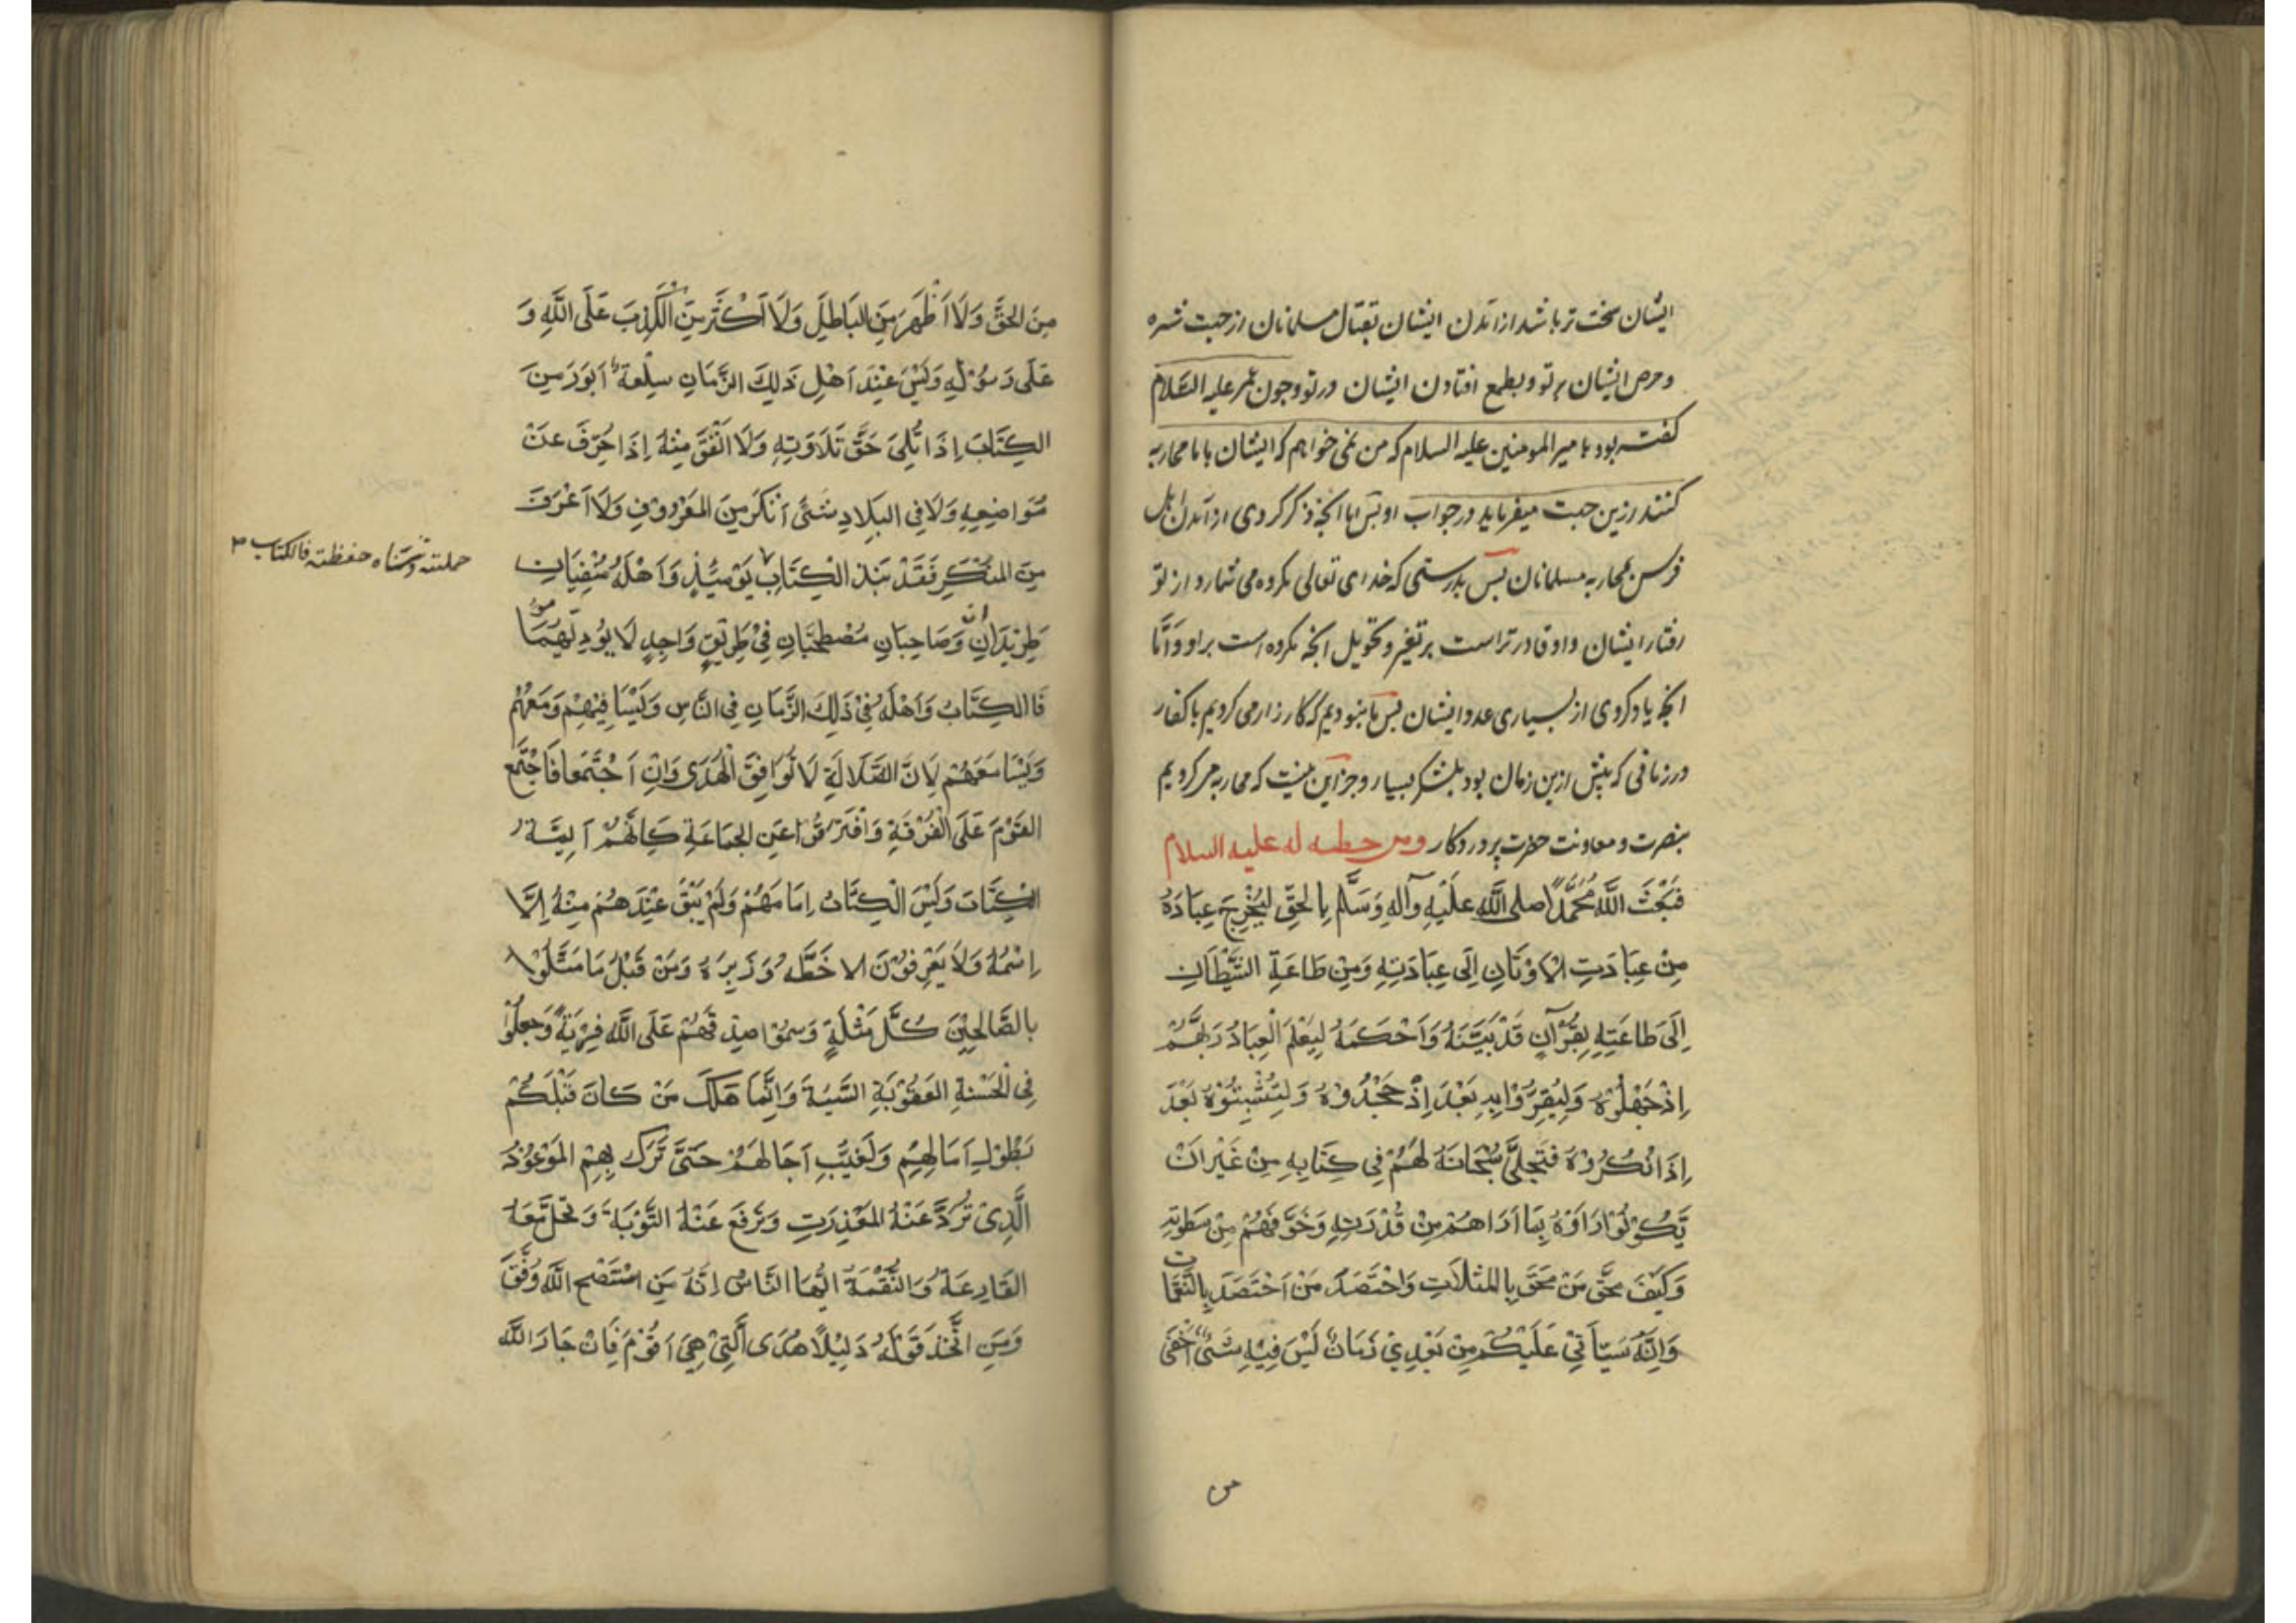 ایشان سخت تر باشد از آمدن ایشان بقتال مسلمانان از جهت شره
و حرص ایشان بر تو و بطمع افتادن ایشان در تو و چون عمر علیه السلام
کفته بود با میر المومنین علیه السلام که من نمی خواهم که ایشان با ما محاربه
کنند ازین جهت میفرماید در جواب او پس اما آنچه ذکر کردی از آمدن اهل
فرس بمحاربه مسلمانان پس بدرستی که خدای تعالی مکروه می شمارد از تو
رفتار ایشان و او قادرتر است بر تغیر و تحویل آنچه مکروه است بر او وَاَمَّا
آنچه یاد کردی از بسیاری عدد ایشان پس ما نبودیم که کارزار می کردیم با کفار
در زمانی که پیش ازین زمان بود بلشکر بسیار و جز این نیست که محاربه می کردیم
بنصرت و معاونت حضرت پروردکار ومن خطبه له علیه السلام
فَبَعَثَ اللَّهُ مُحَمَّدًا صلى اللَّه عَلَيْهِ وَآلِهِ وَسَلَّم بِالحَقِّ لِيُخْرِجَ عِبَادَهُ
مِنْ عِبَادَتِ الْاَوْثَانِ اِلَى عِبَادَتِهِ وَمِنْ طَاعَةِ الشَّيْطَانِ
اِلَى طَاعَتِهِ بِقُرْآنٍ قَدْ بَيَّنَهُ وَاَحْكَمَهُ لِيَعْلَمَ الْعِبَادُ رَبَّهُمْ
اِذْ جَهِلُوْهُ وَلِيُقِرُّوْا بِهِ بَعْدَ اِذْ جَحَدُوْهُ وَلِيُثْبِتُوْهُ بَعْدَ
اِذْ اَنْكَرُوْهُ فَتَجَلَّى سُبْحَانَهُ لَهُمْ فِي كِتَابِهِ مِنْ غَيْرِ اَنْ
يَكُوْنُوْا رَاَوْهُ بِمَا اَرَاهُمْ مِنْ قُدْرَتِهِ وَخَوَّفَهُمْ مِنْ سَطْوَتِهِ
وَكَيْفَ مَحَقَ مَنْ مَحَقَ بِالمَثُلَاتِ وَاحْتَصَدَ مَنْ اَحْتَصَدَ بِالنَّقَمَاتِ
وَاِنَّهُ سَيَاْتِيْ عَلَيْكُمْ مِنْ بَعْدِيْ زَمَانٌ لَيْسَ فِيْهِ شَىْءٌ اَخْفَى
من
مِنَ الحَقِّ وَلَا اَظْهَرَ مِنَ البَاطِلِ وَلَا اَكْثَرَ مِنَ الْكَذِبِ عَلَى اللَّهِ وَ
عَلَى رَسُوْلِهِ وَلَيْسَ عِنْدَ اَهْلِ ذَلِكَ الزَّمَانِ سِلْعَةٌ اَبْوَرَ مِنَ
الكِتَابِ اِذَا تُلِيَ حَقَّ تَلَاوَتِهِ وَلَا اَنْفَقَ مِنْهُ اِذَا حُرِّفَ عَنْ
مَوَاضِعِهِ وَلَا فِي البِلَادِ شَىْءٌ اَنْكَرَ مِنَ المَعْرُوْفِ وَلَا اَعْرَفَ
مِنَ المُنْكَرِ فَقَدْ نَبَذَ الكِتَابَ يَوْمَئِذٍ وَاَهْلُهُ مَنْفِيَانِ
حملته وتناساه حفظته فالکتاب
طَرِيْدَانِ وَصَاحِبَانِ مُصْطَحِبَانِ فِيْ طَرِيْقٍ وَاحِدٍ لَا يُؤْدِيْهِمَا مؤ
فَالكِتَابُ وَاَهْلُهُ فِيْ ذَلِكَ الزَّمَانِ فِي النَّاسِ وَلَيْسَا فِيْهِمْ وَمَعَهُمْ
وَلَيْسَا مَعَهُمْ لِاَنَّ الضَّلَالَةَ لَا تُوَافِقُ الْهُدَى وَاِنِ اَجْتَمَعَا فَاجْتَمَعَ
القَوْمُ عَلَى الْفُرْقَةِ وَافْتَرَقُوْا عَنِ الجَمَاعَةِ كَاَنَّهُمْ اَئِمَّةُ
الكِتَابِ وَلَيْسَ الْكِتَابُ اِمَامَهُمْ وَلَمْ يَبْقَ عِنْدَهُمْ مِنْهُ اِلَّا
اِسْمُهُ وَلَا يَعْرِفُوْنَ الا خَطَّهُ وَزَبْرَهُ وَمِنْ قَبْلُ مَا مَثَّلُوْا
بالصَّالِحِيْنَ كُلَّ مَثْلَةٍ وَسَمُّوْا صِدْقَهُمْ عَلَى اللَّهِ فِرْيَةً وَجعلُوْا
فِي الْحَسَنَةِ العَقُوْبَةَ السَّيِّئَةَ وَاِنَّمَا هَلَكَ مَنْ كَانَ قَبْلَكُمْ
بِطُوْلِ اَمَالِهِمْ وَتَغَيُّبِ اَجَالِهِمْ حَتَّى نَزَلَ بِهِمُ المَوْعُوْدُ
الَّذِيْ تُرَدُّ عَنْهُ المَعْذِرَتِ وَتُرْفَعُ عَنْهُ التَّوْبَةُ وَتَحُلُّ مَعَهُ
القَارِعَةُ وَالنِّقْمَةُ اَيُّهَا النَّاسُ اِنَّهُ مَنِ اسْتَنْصَحَ اللَّهَ وُفِّقَ
وَمَنِ اتَّخَذَ قَوْلَهُ دَلِيْلًا هُدِىَ اَلَّتِيْ هِيَ اَقُوْمُ فَاِنَّ جَارَ اللَّهِ